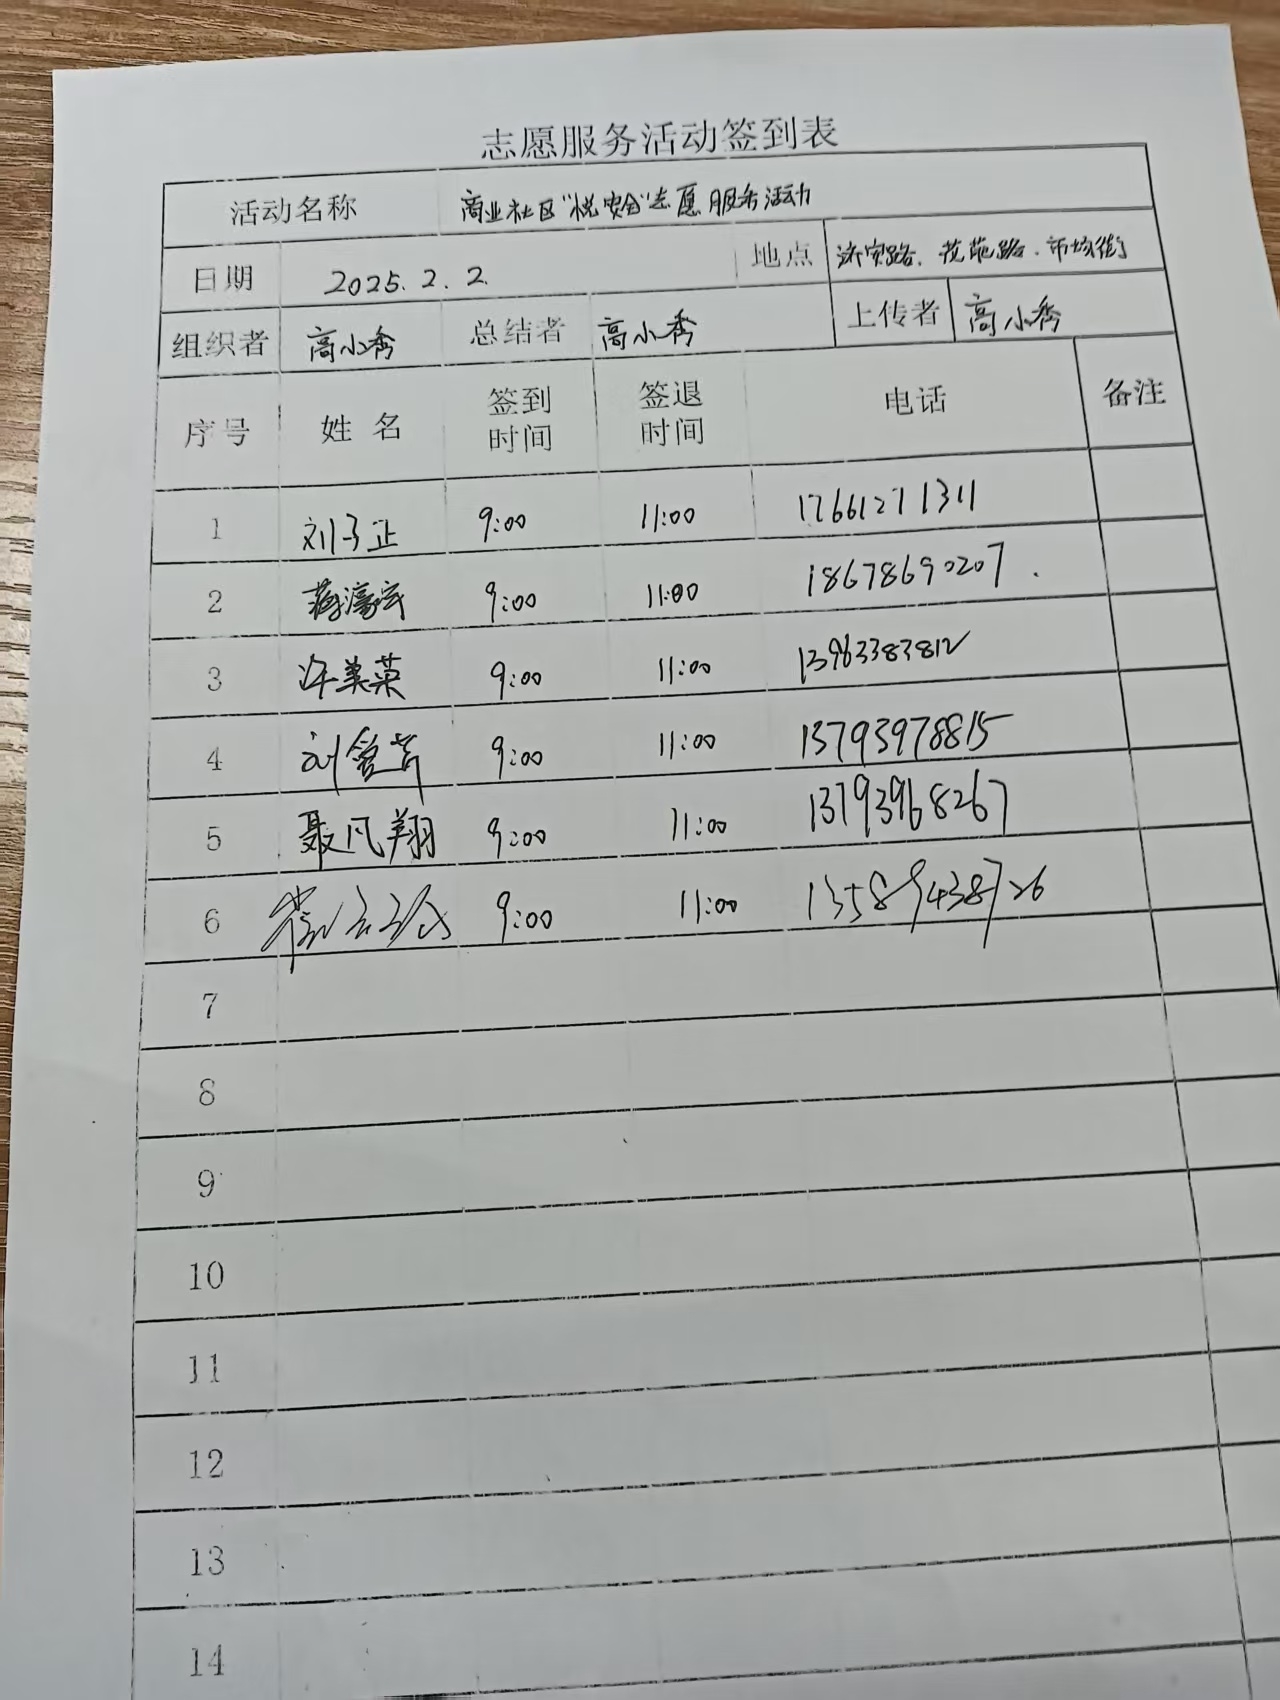 志愿服务活动签到表
活动名称 商业社区"悦安全"志愿服务活动
日期 2025.2.2. 地点 济宁路、茂苑路、市场街
组织者 高小秀 总结者 高小秀 上传者 高小秀
序号 姓名 签到时间 签退时间 电话 备注
1 刘子正 9:00 11:00 17661271311
2 蒋濠宇 9:00 11:00 18678690207.
3 许美荣 9:00 11:00 13963383812
4 刘 9:00 11:00 13793978815
5 聂凡翔 9:00 11:00 13793968267
6 9:00 11:00 13589438726
7
8
9
10
11
12
13
14